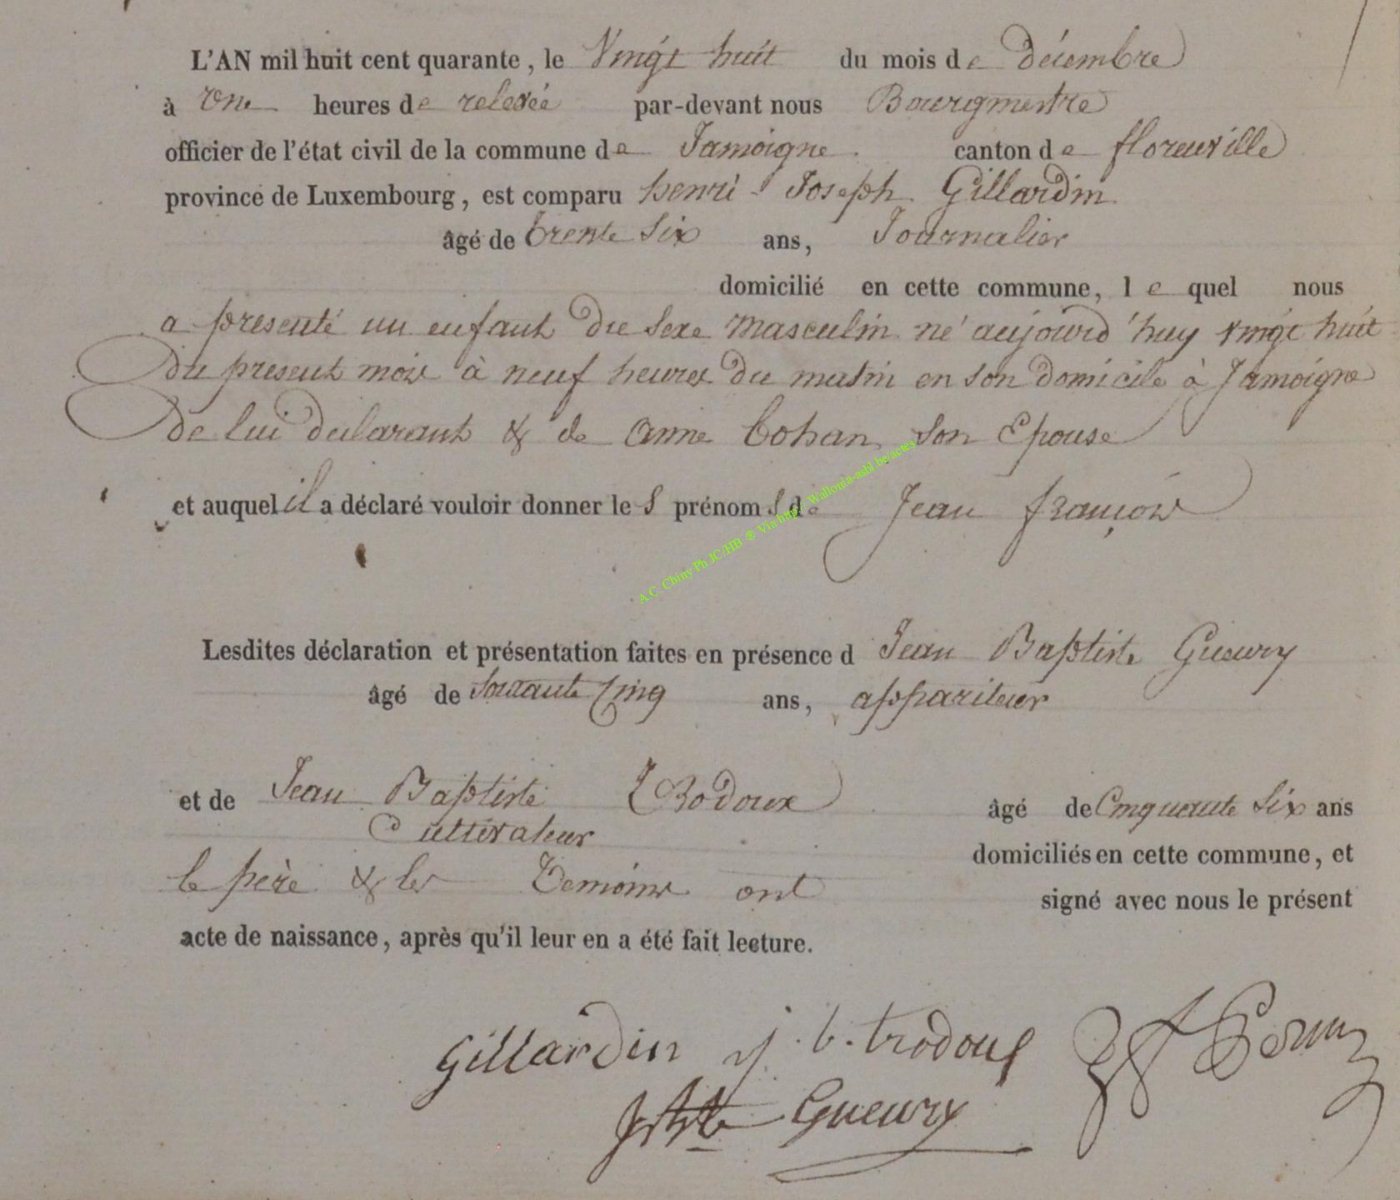 L'AN mil huit cent quarante, le Vingt huit du mois de décembre
à Une heures de relevée par-devant nous Bourgmestre
officier de l'état civil de la commune de Jamoigne canton de florenville
province de Luxembourg, est comparu henri Joseph Gillardin
âgé de trente Six ans, Journalier
domicilié en cette commune, le quel nous
a presenté un enfant du Sexe masculin né aujourd'huy vingt huit
du present mois à neuf heures du matin en son domicile à Jamoigne
de lui declarant & de anne Cohan Son Epouse
et auquel il a déclaré vouloir donner le S prénom S de Jean françois
A.C. Chiny Ph JC/HB ® Via Wallonia-asbl.be/actes
Lesdites déclaration et présentation faites en présence d Jean Baptiste Gueury
âgé de Soixante Cinq ans, appariteur
et de Jean Baptiste Trodoux âgé de Cinquante Six ans
Cultivateur
domiciliés en cette commune, et
le père & les Temoins ont
signé avec nous le présent
acte de naissance, après qu'il leur en a été fait lecture.
Gillardin j. b. trodoux
Gueury